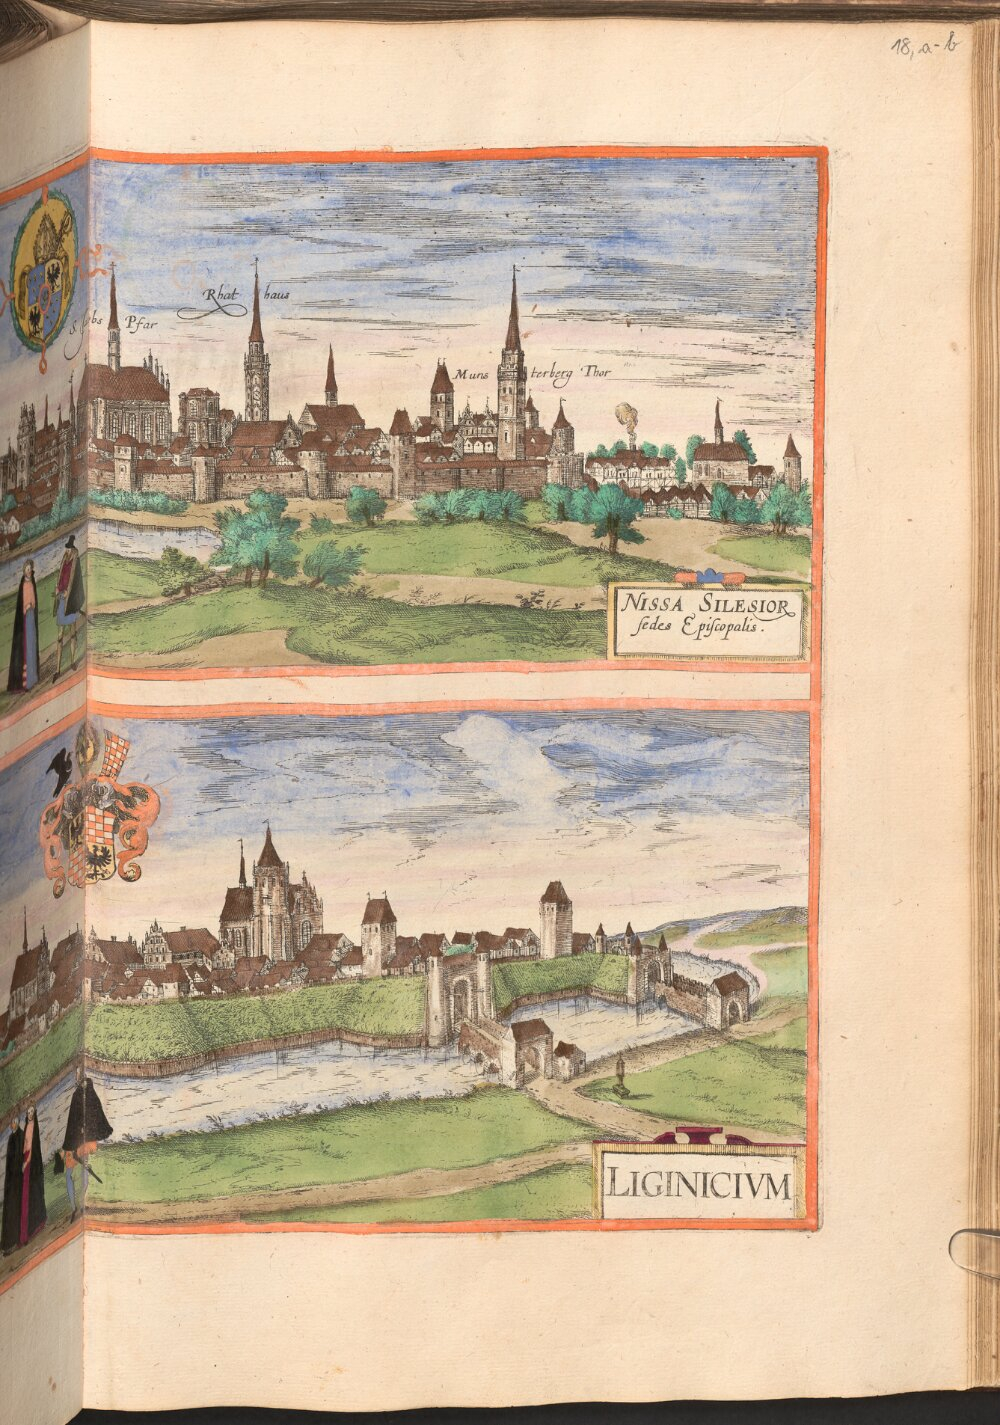 18, a-b
Rhat haus
Pfar
Munsterberg Thor
NISSA SILESIOR
sedes Episcopalis.
LIGINICIVM